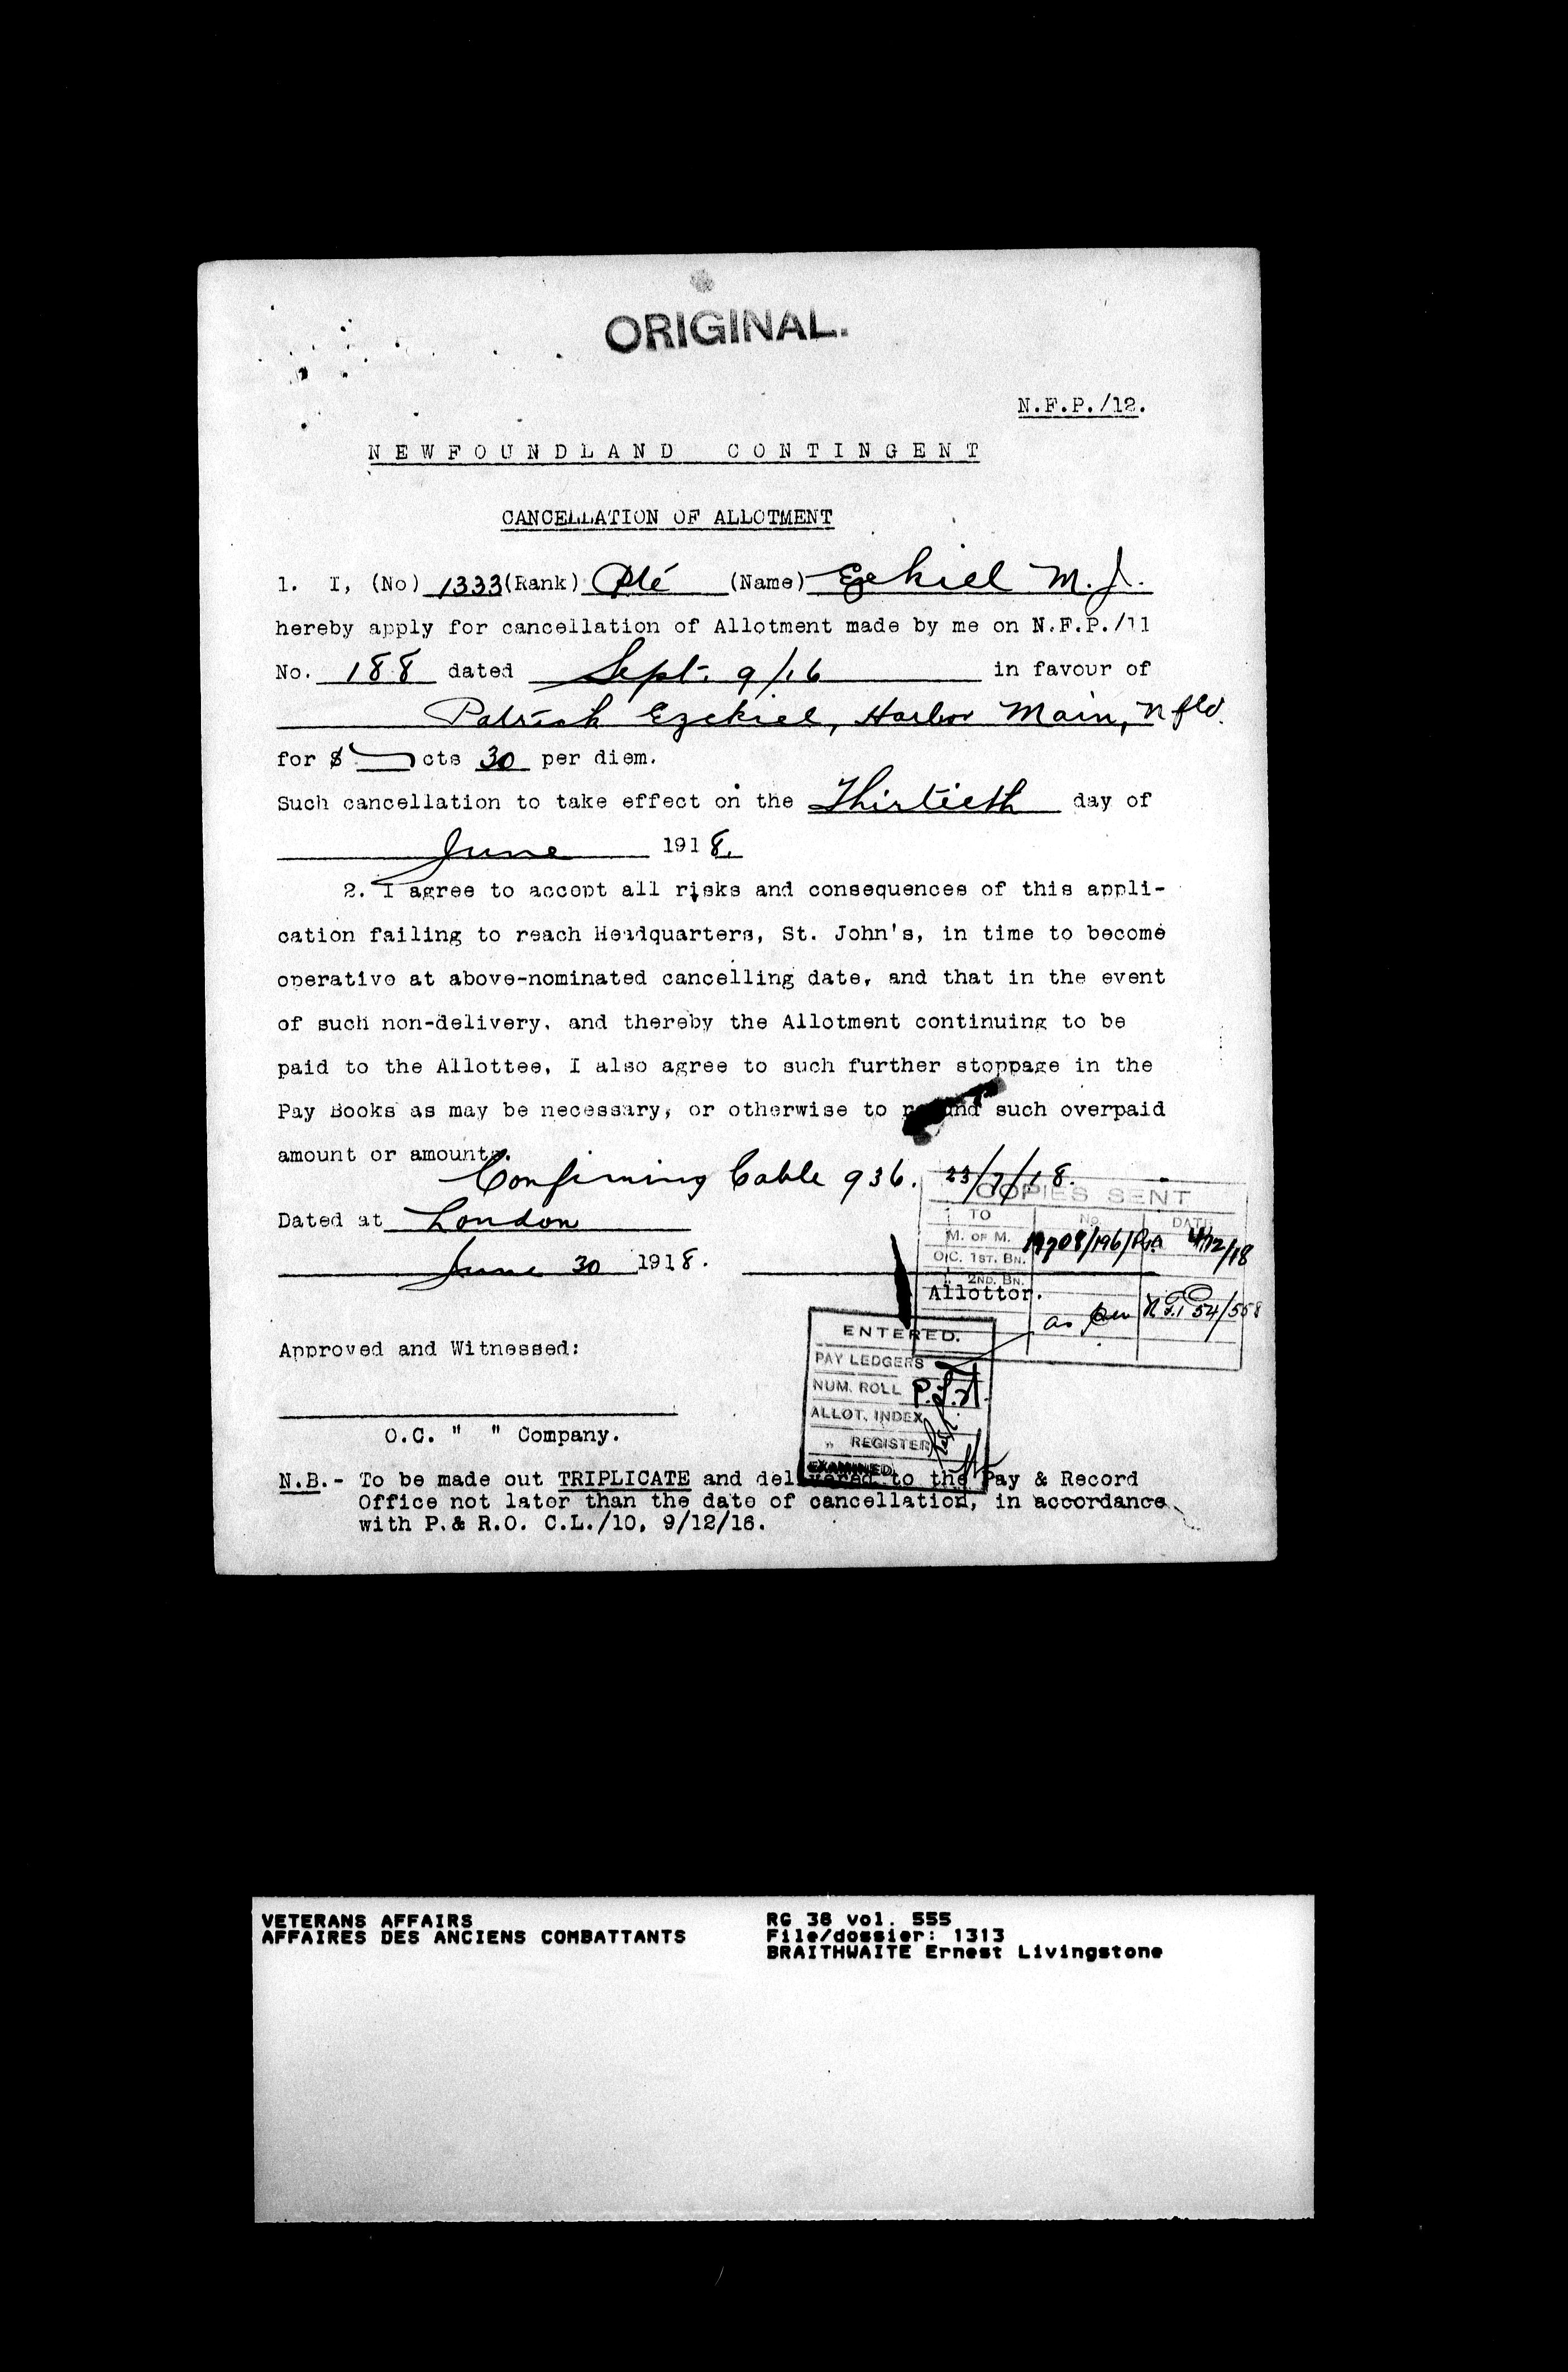 ORIGINAL.
N.F.P./12.
NEWFOUNDLAND CONTINGENT
CANCELLATION OF ALLOTMENT
1. I, (No) 1333 (Rank) Pte (Name) Ezekiel M. J.
hereby apply for cancellation of Allotment made by me on N.F.P./11
No. 188 dated Sept. 9/16 in favour of
Patrick Ezekiel, Harbor Main, Nfld.
for $ cts 30 per diem.
Such cancellation to take effect on the Thirtieth day of
June 1918.
2. I agree to accept all risks and consequences of this appli-
cation failing to reach Headquarters, St. John's, in time to become
operative at above-nominated cancelling date, and that in the event
of such non-delivery, and thereby the Allotment continuing to be
paid to the Allottee, I also agree to such further stoppage in the
Pay Books as may be necessary, or otherwise to refund such overpaid
amount or amounts.
Confirming Cable 936. 23/7/18.
COPIES SENT
TO No. DATE
M. OF M.
O.C. 1ST. BN.
" 2ND. BN.
as per
Dated at London
June 30 1918.
Allottor.
ENTERED.
PAY LEDGERS
NUM. ROLL
ALLOT. INDEX
" REGISTER
EXAMINED
Approved and Witnessed:
O.C. " " Company.
N.B.- To be made out TRIPLICATE and delivered to the Pay & Record
Office not later than the date of cancellation, in accordance
with P.& R.O. C.L./10, 9/12/16.
VETERANS AFFAIRS
AFFAIRES DES ANCIENS COMBATTANTS
RG 38 vol. 555
File/dossier: 1313
BRAITHWAITE Ernest Livingstone